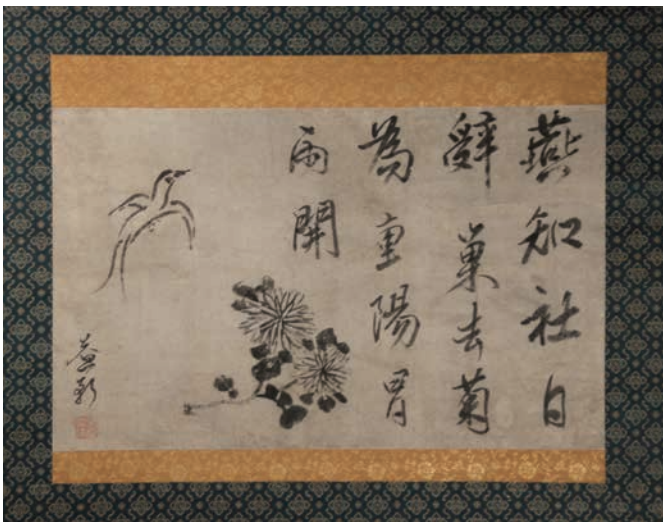 燕知社日
辭巣去菊
為重陽冒
雨開